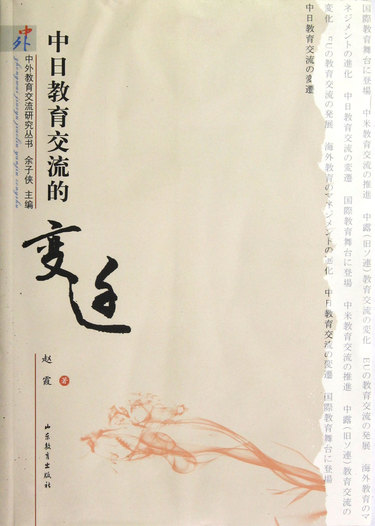 中外
中外教育交流研究丛书 余子侠 主编
中日教育交流的
变迁
赵霞 著
山东教育出版社
国際教育舞台に登場 中米教育交流の推進 中露(旧ソ連)教育交流の変化 EUの教育交流の発展 海外教育のマ
ネジメントの進化 中日教育交流の変遷 国際教育舞台に登場 中米教育交流の推進 中露(旧ソ連)教育交流の
変化 EUの教育交流の発展 海外教育のマネジメントの進化 中日教育交流の変遷 国際教育舞台に登場
中日教育交流の変遷